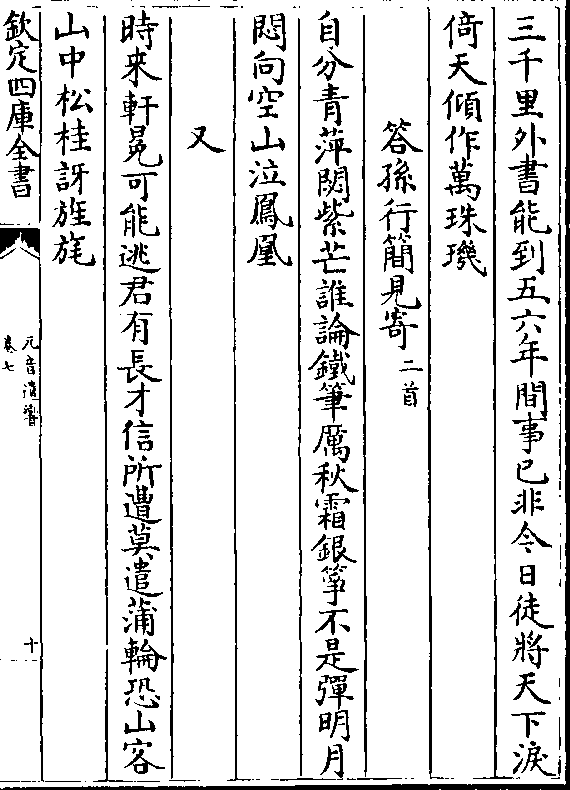 三千里外書能到五六年間事已非今日徒將天下淚
倚天傾作萬珠璣
答孫行簡見寄二首
自分青萍閟紫芒誰論鐵筆厲秋霜銀箏不是彈明月
悶向空山泣鳳凰
又
時来軒冕可能逃君有長才信所遭莫遣蒲輪恐山客
山中松桂訝旌旄
欽定四庫全書
元音遺響
卷七
十